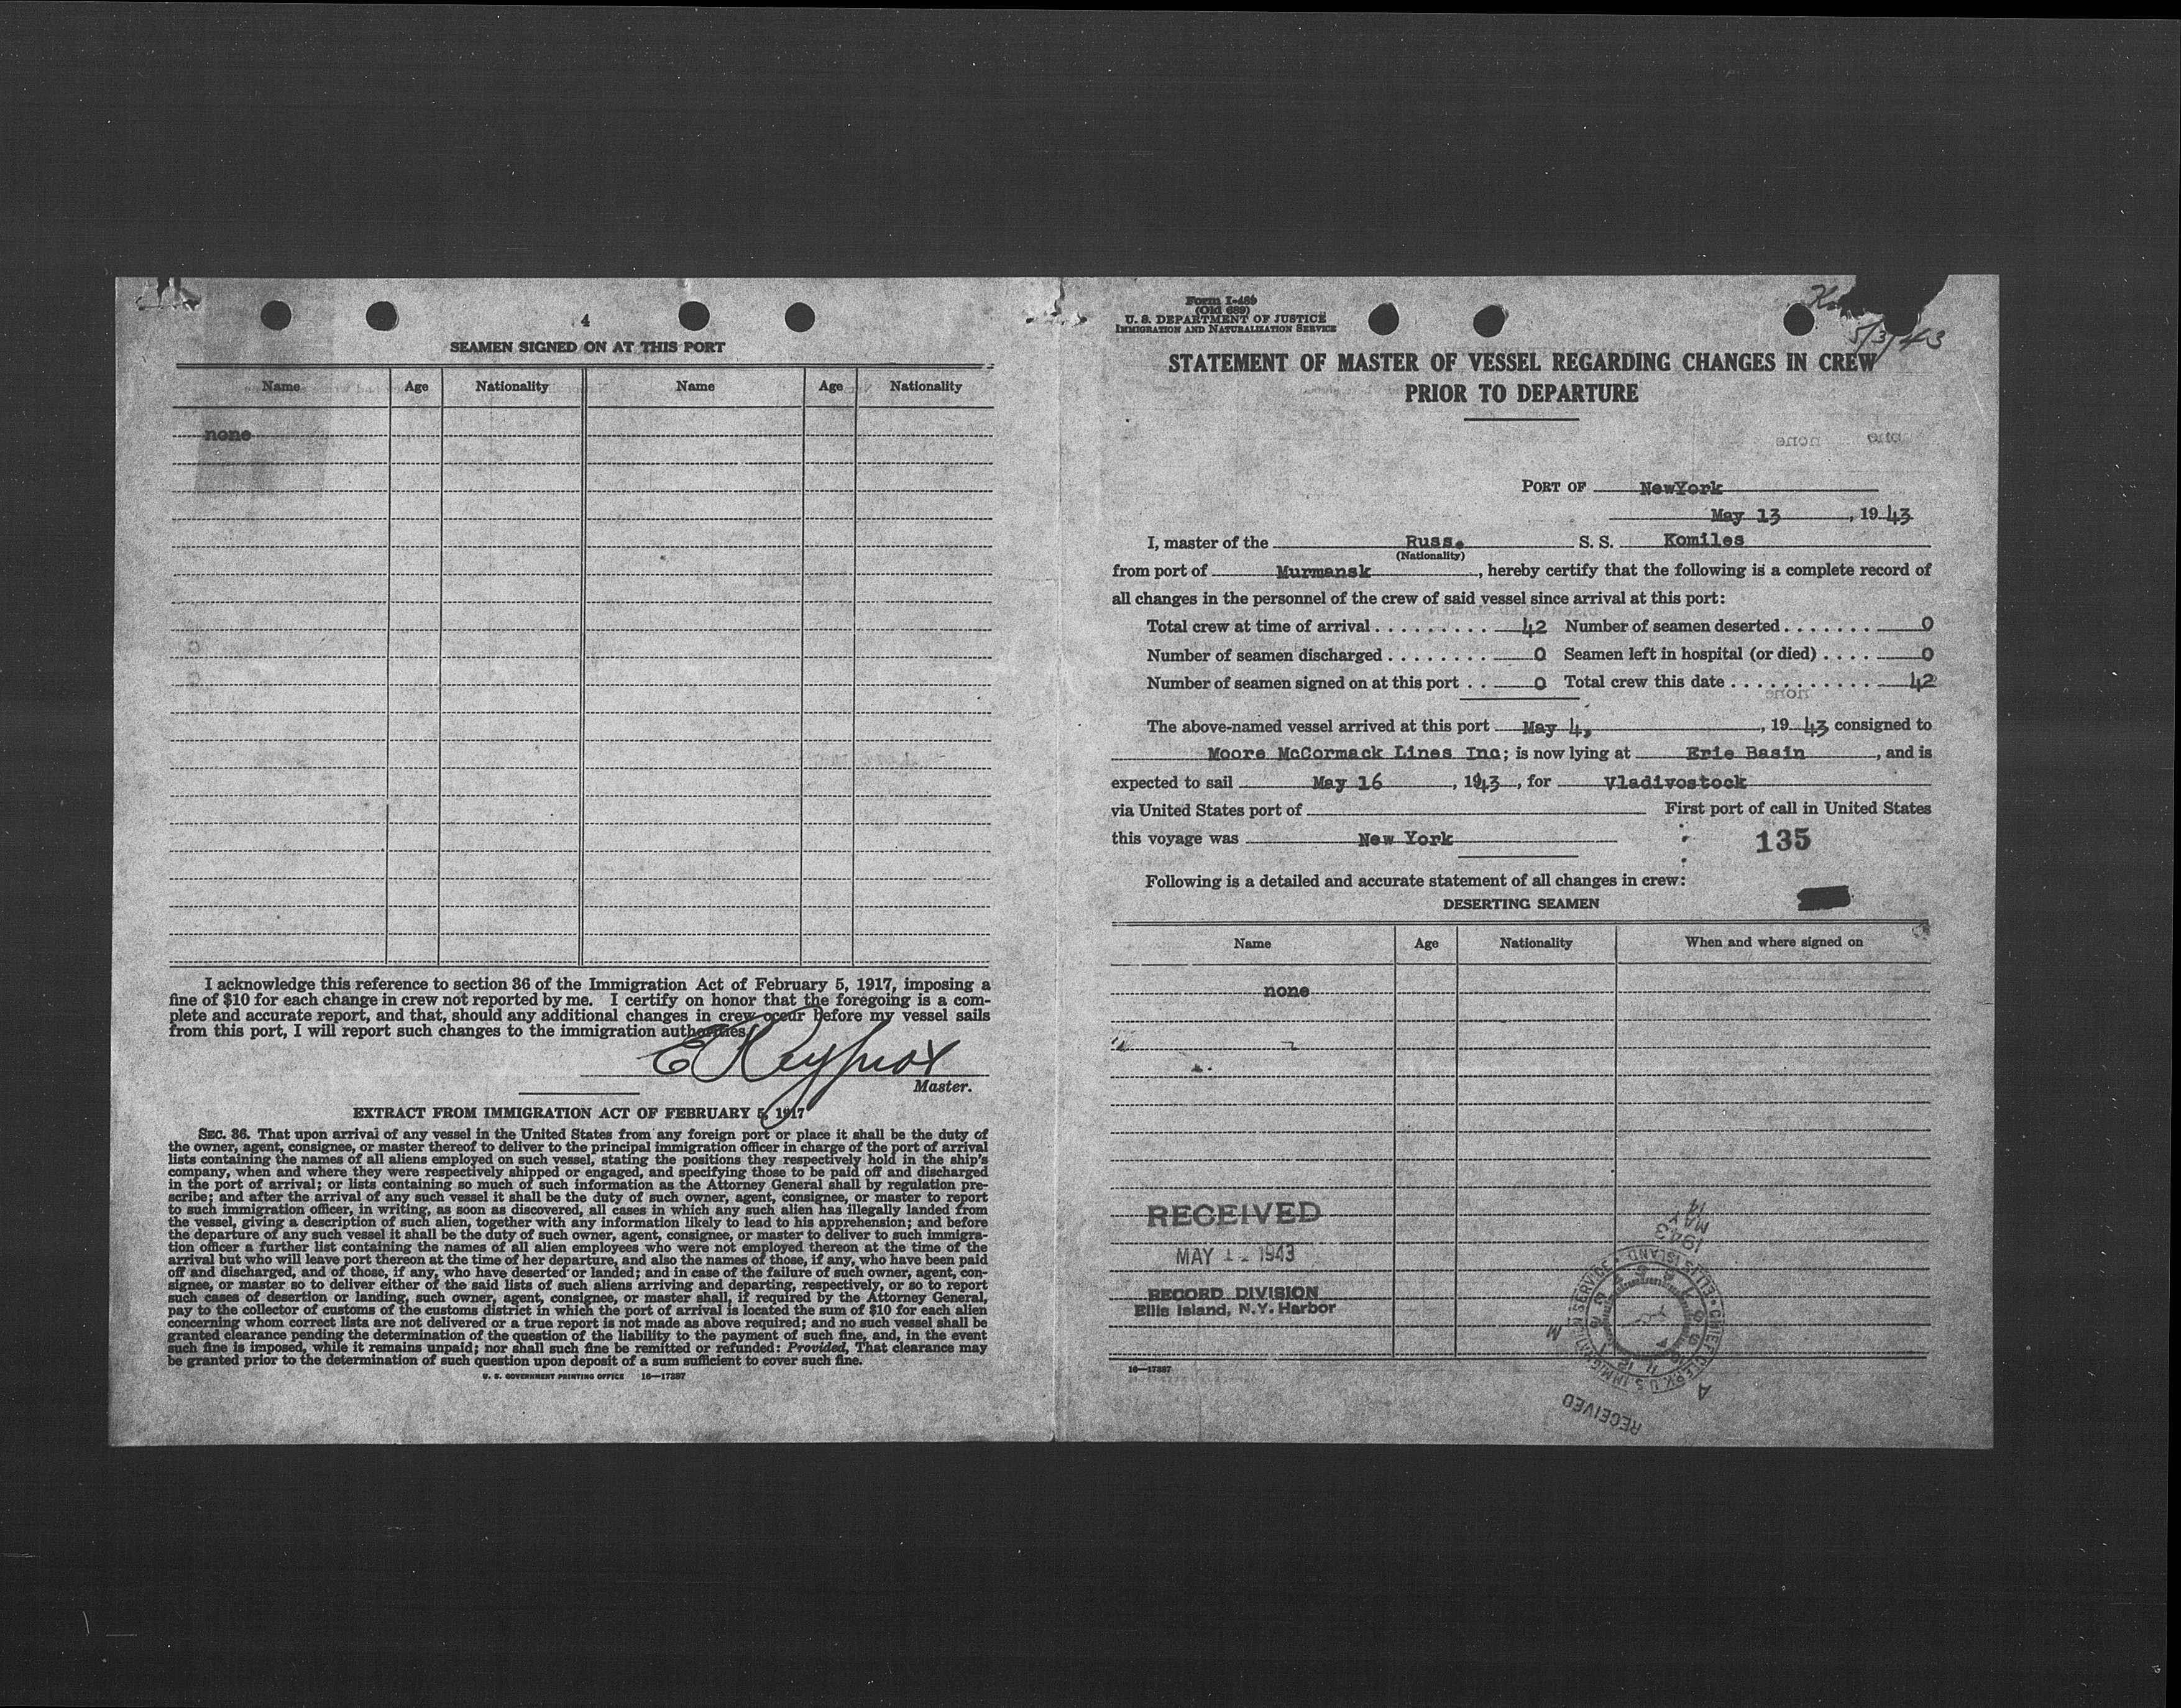 4
SEAMEN SIGNED ON AT THIS PORT
Name Age Nationality Name Age Nationality
none
I acknowledge this reference to section 36 of the Immigration Act of February 5, 1917, imposing a
fine of $10 for each change in crew not reported by me. I certify on honor that the foregoing is a com-
plete and accurate report, and that, should any additional changes in crew occur before my vessel sails
from this port, I will report such changes to the immigration authorities.
Master.
EXTRACT FROM IMMIGRATION ACT OF FEBRUARY 5, 1917
SEC. 36. That upon arrival of any vessel in the United States from any foreign port or place it shall be the duty of
the owner, agent, consignee, or master thereof to deliver to the principal immigration officer in charge of the port of arrival
lists containing the names of all aliens employed on such vessel, stating the positions they respectively hold in the ship's
company, when and where they were respectively shipped or engaged, and specifying those to be paid off and discharged
in the port of arrival; or lists containing so much of such information as the Attorney General shall by regulation pre-
scribe; and after the arrival of any such vessel it shall be the duty of such owner, agent, consignee, or master to report
to such immigration officer, in writing, as soon as discovered, all cases in which any such alien has illegally landed from
the vessel, giving a description of such alien, together with any information likely to lead to his apprehension; and before
the departure of any such vessel it shall be the duty of such owner, agent, consignee, or master to deliver to such immigra-
tion officer a further list containing the names of all alien employees who were not employed thereon at the time of the
arrival but who will leave port thereon at the time of her departure, and also the names of those, if any, who have been paid
off and discharged, and of those, if any, who have deserted or landed; and in case of the failure of such owner, agent, con-
signee, or master so to deliver either of the said lists of such aliens arriving and departing, respectively, or so to report
such cases of desertion or landing, such owner, agent, consignee, or master shall, if required by the Attorney General,
pay to the collector of customs of the customs district in which the port of arrival is located the sum of $10 for each alien
concerning whom correct lists are not delivered or a true report is not made as above required; and no such vessel shall be
granted clearance pending the determination of the question of the liability to the payment of such fine, and, in the event
such fine is imposed, while it remains unpaid; nor shall such fine be remitted or refunded: Provided, That clearance may
be granted prior to the determination of such question upon deposit of a sum sufficient to cover such fine.
U. S. GOVERNMENT PRINTING OFFICE 16—17287
Form I-489
(Old 689)
U. S. DEPARTMENT OF JUSTICE
IMMIGRATION AND NATURALIZATION SERVICE
5/3/43
STATEMENT OF MASTER OF VESSEL REGARDING CHANGES IN CREW
PRIOR TO DEPARTURE
PORT OF NewYork
May 13, 1943
I, master of the Russ. S. S. Komiles
(Nationality)
from port of Murmansk, hereby certify that the following is a complete record of
all changes in the personnel of the crew of said vessel since arrival at this port:
Total crew at time of arrival 42 Number of seamen deserted 0
Number of seamen discharged 0 Seamen left in hospital (or died) 0
Number of seamen signed on at this port 0 Total crew this date 42
The above-named vessel arrived at this port May 4, 1943 consigned to
Moore McCormack Lines Inc; is now lying at Erie Basin, and is
expected to sail May 16, 1943, for Vladivostock
via United States port of First port of call in United States
this voyage was New York
135
Following is a detailed and accurate statement of all changes in crew:
DESERTING SEAMEN
Name Age Nationality When and where signed on
none
RECEIVED
MAY 1 1943
RECORD DIVISION
Ellis Island, N.Y. Harbor
16—17287
MAY 14
1943
CHIEF CLERK U S IMMIGRATION SERVICE ELLIS ISLAND
RECEIVED